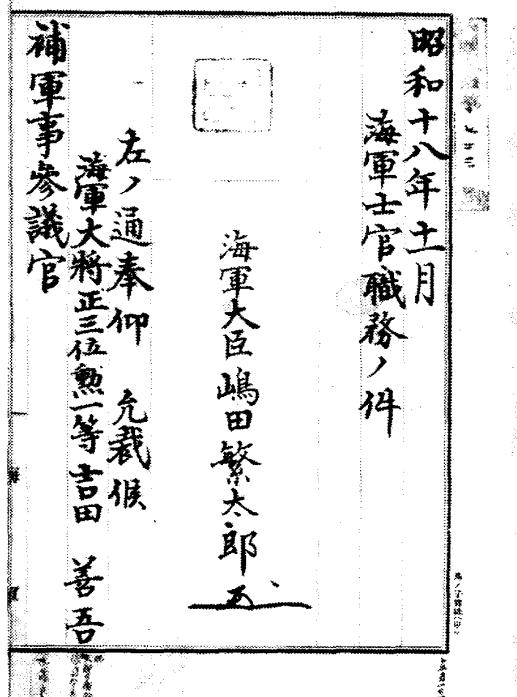 昭和十八年十一月
海軍士官職務ノ件
海軍大臣嶋田繁太郎
左ノ通奉仰 允裁候
海軍大將正三位勲一等吉田 善吾
補軍事參議官